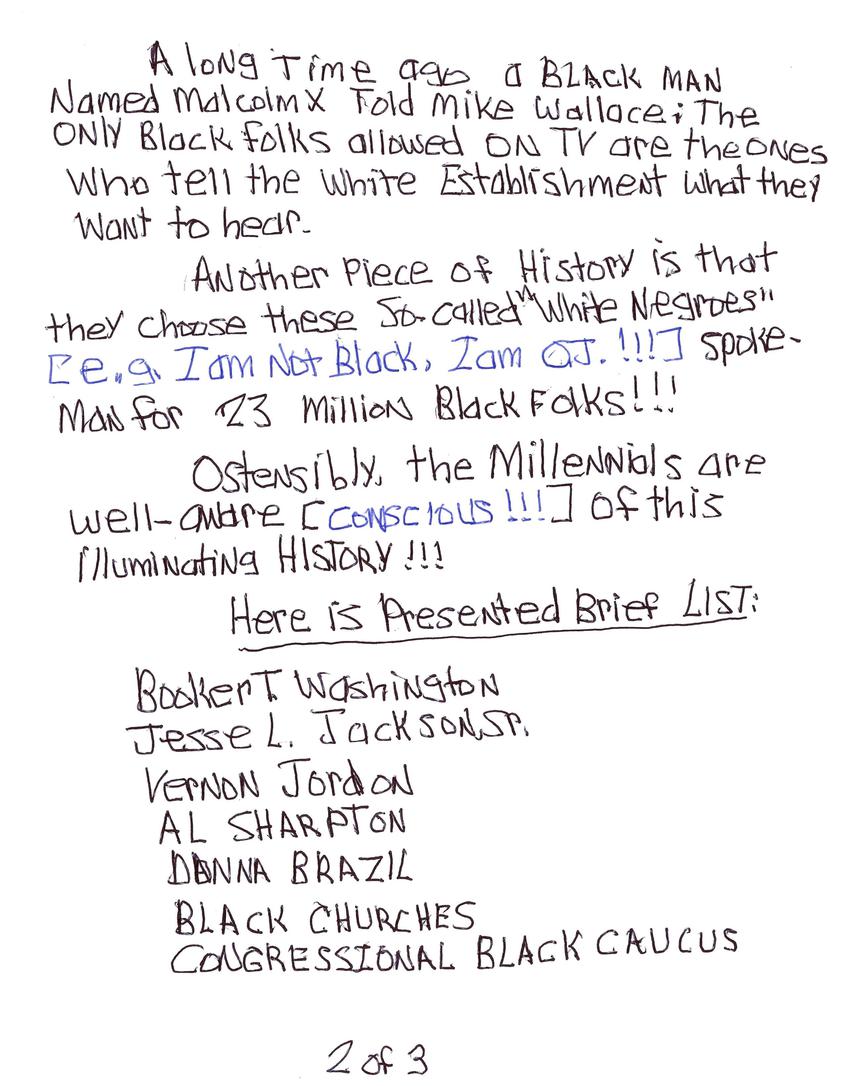 A long Time ago a BLACK MAN
Named Malcolm X Told Mike Wallace; The
ONLY Black folks allowed ON TV are the ONES
Who tell the White Establishment what they
Want to hear.
ANother Piece of History is that
they choose these So-called "White Negroes"
[e.g. I am Not Black, I am OJ. !!!] spoke-
MaN for 23 Million Black Folks!!!
Ostensibly, the Millennials are
well-aware [CONSCIOUS !!!] of this
illuminating HISTORY !!!
Here is Presented Brief LIST:
Booker T. Washington
Jesse L. Jackson, Sr.
VerNoN Jordon
AL SHARPTON
DONNA BRAZIL
BLACK CHURCHES
CONGRESSIONAL BLACK CAUCUS
2 of 3